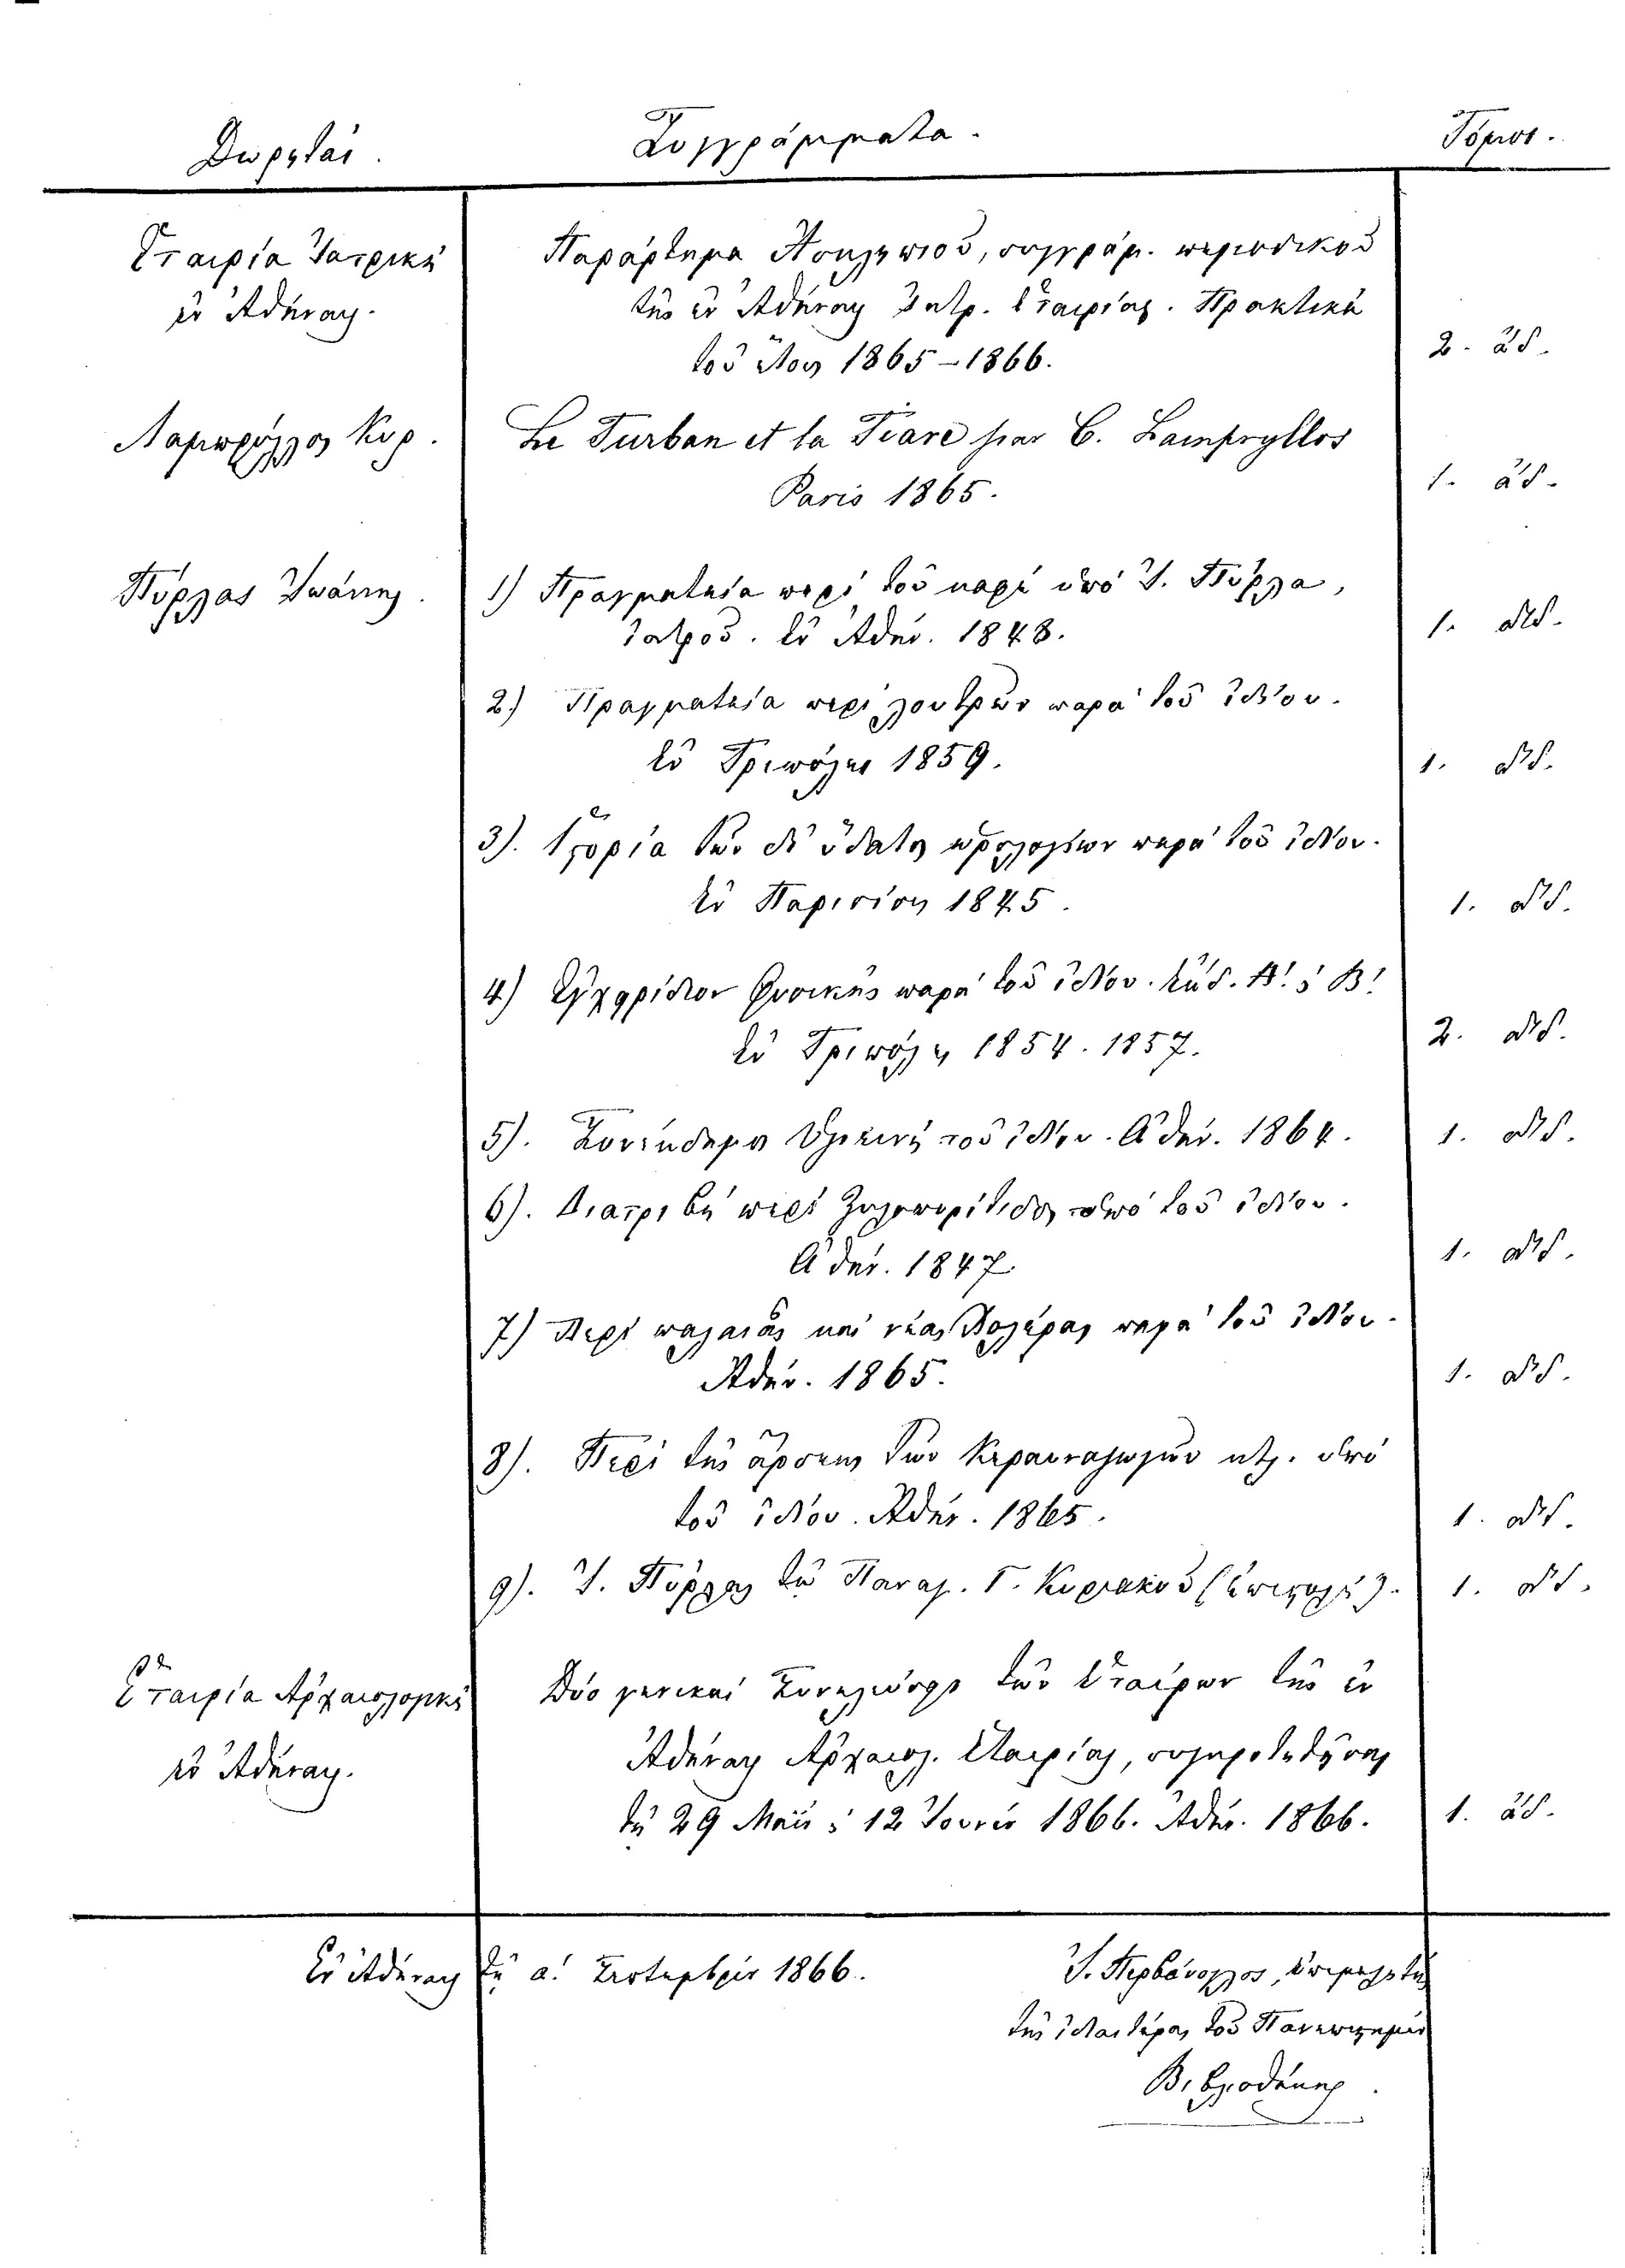 Δωρηταί. Συγγράμματα. Τόμοι.
Ἑταιρία Ἰατρική Παράρτημα Ἀσκληπιοῦ, συγγράμ. περιοδικοῦ
ἐν Ἀθήναις. τῆς ἐν Ἀθήναις Ἰατρ. Ἑταιρίας. Πρακτικά
τοῦ ἔτους 1865–1866. 2. ἄδ.
Λαμπρύλλος Κυρ. Le Turban et la Tiare par C. Lampryllos
Paris 1865. 1. ἄδ.
Πύρλας Ἰωάννης. 1) Πραγματεία περί τοῦ καφέ ὑπό Ἰ. Πύρλα,
ἰατροῦ. ἐν Ἀθήν. 1848. 1. δδ.
2.) Πραγματεία περί λουτρῶν παρά τοῦ ἰδίου.
ἐν Τριπόλει 1859. 1. δδ.
3). Ἱστορία τῶν δι' ὕδατος ὡρολογίων παρά τοῦ ἰδίου.
ἐν Παρισίοις 1845. 1. δδ.
4) Ἐγχειρίδιον Φυσικῆς παρά τοῦ ἰδίου. ἔκδ. Α! ϗ Β!
ἐν Τριπόλει 1854. 1857. 2. δδ.
5). Συνείδημα Ὑγιεινή τοῦ ἰδίου. Ἀθήν. 1864. 1. δδ.
6). Διατριβή περί ὑπό τοῦ ἰδίου.
Ἀθήν. 1847. 1. δδ.
7) Περί παλαιᾶς καί νέας Χολέρας παρά τοῦ ἰδίου.
Ἀθήν. 1865. 1. δδ.
8). Περί τῆς ἄρσεως τῶν Κεραυναγωγῶν κτλ. ὑπό
τοῦ ἰδίου. Ἀθήν. 1865. 1. δδ.
9). Ἰ. Πύρλας τῷ Παναγ. Γ. Κυριακοῦ (ἐπιστολή). 1. δδ.
Ἑταιρία Ἀρχαιολογική Δύο γενικαί Συνελεύσεις τῶν ἑταίρων τῆς ἐν
ἐν Ἀθήναις. Ἀθήναις Ἀρχαιολ. Ἑταιρίας, συγκροτηθεῖσαι
τῇ 29 Μαΐου ϗ 12 Ἰουνίου 1866. Ἀθήν. 1866. 1. ἄδ.
Ἐν Ἀθήναις τῇ α! Σεπτεμβρίου 1866. Ἰ. Περβάνογλος, ἐπιμελητής
τῆς ἰδιαιτέρας τοῦ Πανεπιστημίου
Βιβλιοθήκης.